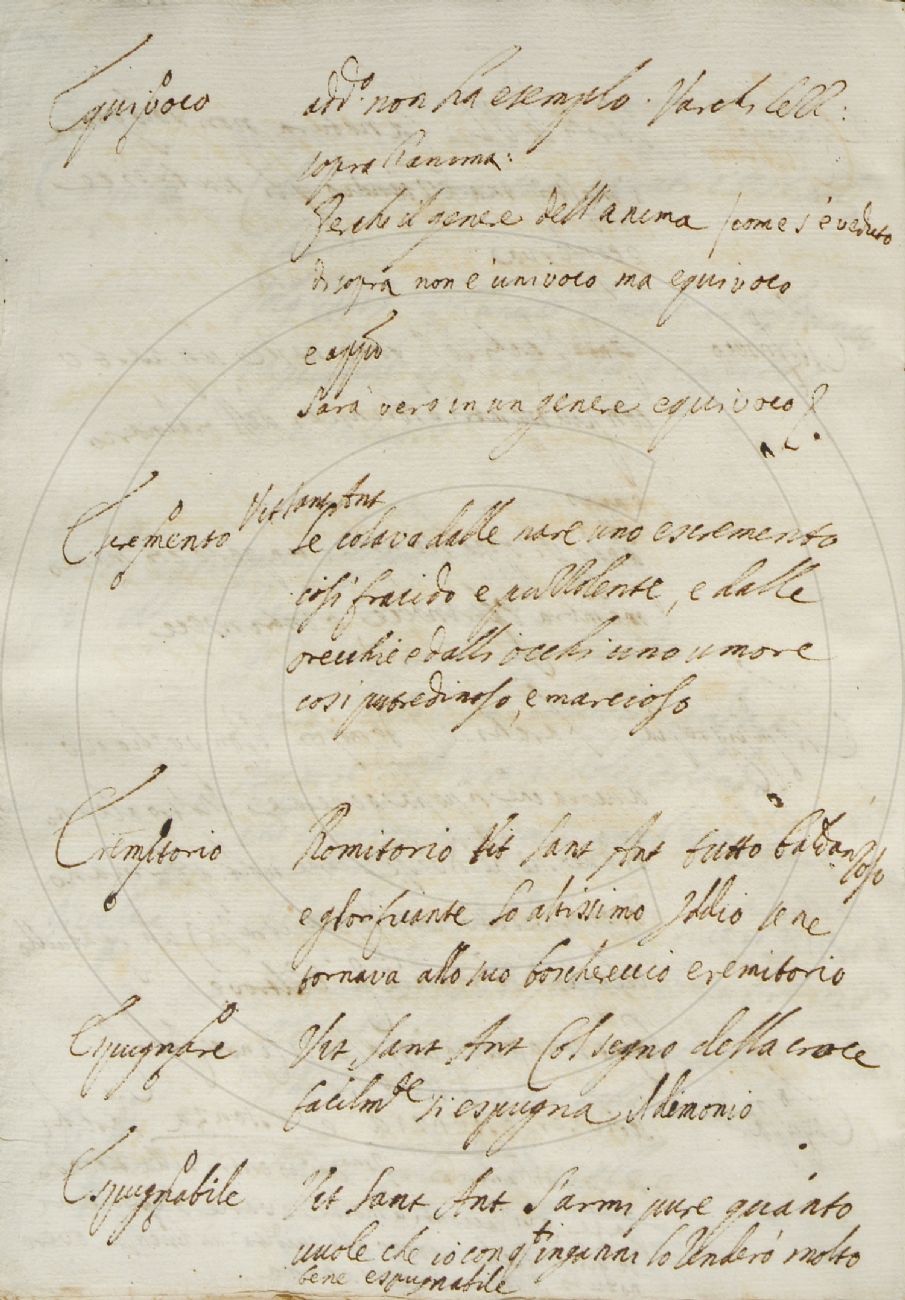 Equivoco add.º non ha esempio. Varchi lez:
sopra l'anima:
Perche il genere dell'anima /come s'è veduto
di sopra non è univoco ma equivoco
e appº
Sarà vero in un genere equivoco?
Escremento Vit Sant Ant
Le colava dalle nare uno escremento
cosi fracido e puzzolente, e dalle
orecchie e dalli occhi uno umore
cosi putredinoso, e marcioso
Eremitorio Romitorio Vit Sant Ant tutto baldanzoso
e glorificante lo altissimo Iddio se ne
tornava allo suo boschereccio eremitorio
Espugnare Vit Sant Ant Col segno della croce
facilmte si espugna il dimonio
Espugnabile Vit Sant Ant S'armi pure quanto
vuole che io con qti inganni lo renderò molto
bene espugnabile